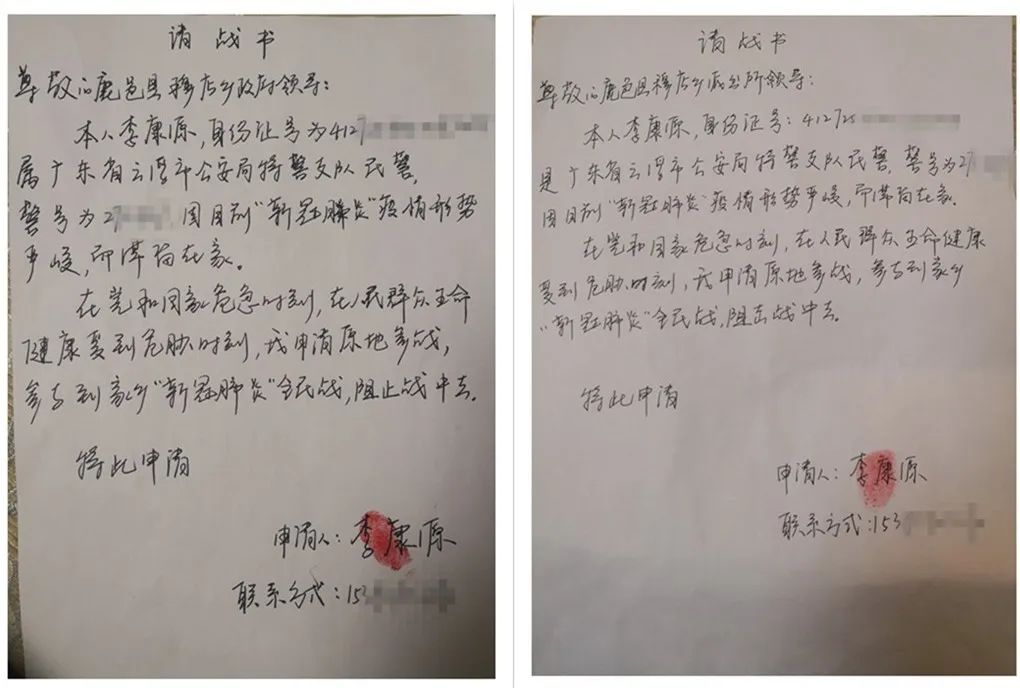 请战书
尊敬的鹿邑县穆店乡政府领导：
本人李康源，身份证号为4127
属广东省云浮市公安局特警支队民警，
警号为27 因目前“新冠肺炎”疫情形势
严峻，而滞留在家。
在党和国家危急时刻，在人民群众生命
健康受到危胁时刻，我申请原地参战，
参与到家乡“新冠肺炎”全民战，阻止战中去。
特此申请
申请人：李康源
联系方式：153
请战书
尊敬的鹿邑县穆店乡派出所领导：
本人李康源，身份证号：412725
是广东省云浮市公安局特警支队民警，警号为27
因目前“新冠肺炎”疫情形势严峻，而滞留在家。
在党和国家危急时刻，在人民群众生命健康
受到危胁时刻，我申请原地参战，参与到家乡
“新冠肺炎”全民战，阻击战中去。
特此申请
申请人：李康源
联系方式：153